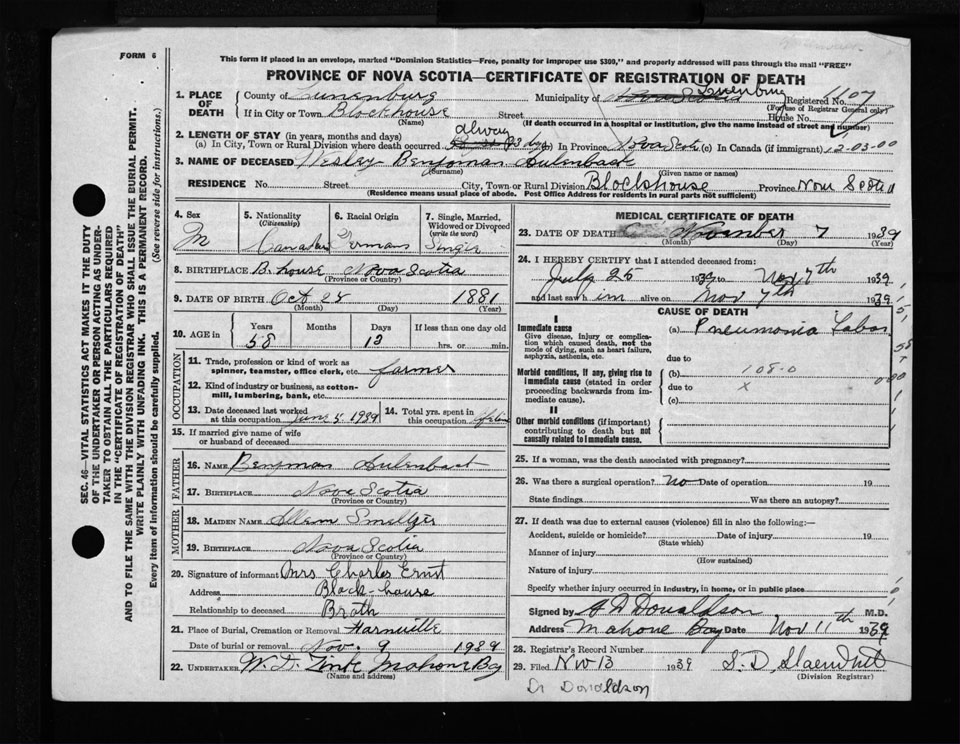 FORM 6
This form if placed in an envelope, marked "Dominion Statistics—Free, penalty for improper use $300," and properly addressed will pass through the mail "FREE"
PROVINCE OF NOVA SCOTIA—CERTIFICATE OF REGISTRATION OF DEATH
1. PLACE OF DEATH County of Lunenburg Municipality of Lunenburg Registered No. 1107
(For use of Registrar General only)
If in City or Town Blockhouse Street House No.
(Name) (If death occurred in a hospital or institution, give the name instead of street and number)
2. LENGTH OF STAY (in years, months and days)
(a) In City, Town or Rural Division where death occurred always (b) In Province Nova Scotia (c) In Canada (if immigrant) 12-03-00
3. NAME OF DECEASED Wesley Benjman Aulenback
(Surname) (Given name or names)
RESIDENCE No. Street City, Town or Rural Division Blockhouse Province Nova Scotia
(Residence means usual place of abode. Post Office Address for residents in rural parts not sufficient)
4. Sex M
5. Nationality (Citizenship) Canadian
6. Racial Origin German
7. Single, Married, Widowed or Divorced (write the word) Single
8. BIRTHPLACE B. house Nova Scotia
(Province or Country)
9. DATE OF BIRTH Oct 28 1881
(Month) (Day) (Year)
10. AGE in Years Months Days If less than one day old
58 13 hrs. or min.
OCCUPATION
11. Trade, profession or kind of work as spinner, teamster, office clerk, etc. farmer
12. Kind of industry or business, as cotton-mill, lumbering, bank, etc.
13. Date deceased last worked at this occupation June 5. 1939
14. Total yrs. spent in this occupation
15. If married give name of wife or husband of deceased
FATHER
16. NAME Benjman Aulenback
17. BIRTHPLACE Nova Scotia
(Province or Country)
MOTHER
18. MAIDEN NAME Smeltzer
19. BIRTHPLACE Nova Scotia
(Province or Country)
20. Signature of informant Mrs Charles Ernst
Address Block-house
Relationship to deceased Broth
21. Place of Burial, Cremation or Removal
Date of burial or removal Nov. 9 1939
22. UNDERTAKER W. Zinck Mahone Bay
(Name and address)
MEDICAL CERTIFICATE OF DEATH
23. DATE OF DEATH November 7 1939
(Month) (Day) (Year)
24. I HEREBY CERTIFY that I attended deceased from:
July 25 1939 to Nov 7th 1939
and last saw him alive on Nov 7th 1939
CAUSE OF DEATH
I
Immediate cause (a) Pneumonia Lobar
Give disease, injury or complication which caused death, not the mode of dying, such as heart failure, asphyxia, asthenia, etc.
due to
Morbid conditions, if any, giving rise to immediate cause (stated in order proceeding backwards from immediate cause).
(b) 108-0
due to X
(c)
II
Other morbid conditions (if important) contributing to death but not causally related to immediate cause.
25. If a woman, was the death associated with pregnancy?
26. Was there a surgical operation? No Date of operation 19
State findings Was there an autopsy?
27. If death was due to external causes (violence) fill in also the following:—
Accident, suicide or homicide? Date of injury 19
(State which)
Manner of injury
(How sustained)
Nature of injury
Specify whether injury occurred in industry, in home, or in public place
Signed by A D Donaldson M.D.
Address Mahone Bay Date Nov 11th 1939
28. Registrar's Record Number
29. Filed Nov 13 1939 S. D.
(Division Registrar)
Dr Donaldson
SEC. 46—VITAL STATISTICS ACT MAKES IT THE DUTY
OF THE UNDERTAKER OR PERSON ACTING AS UNDER-
TAKER TO OBTAIN ALL THE PARTICULARS REQUIRED
IN THE "CERTIFICATE OF REGISTRATION OF DEATH"
AND TO FILE THE SAME WITH THE DIVISION REGISTRAR WHO SHALL ISSUE THE BURIAL PERMIT.
WRITE PLAINLY WITH UNFADING INK. THIS IS A PERMANENT RECORD.
Every item of information should be carefully supplied. (See reverse side for instructions.)